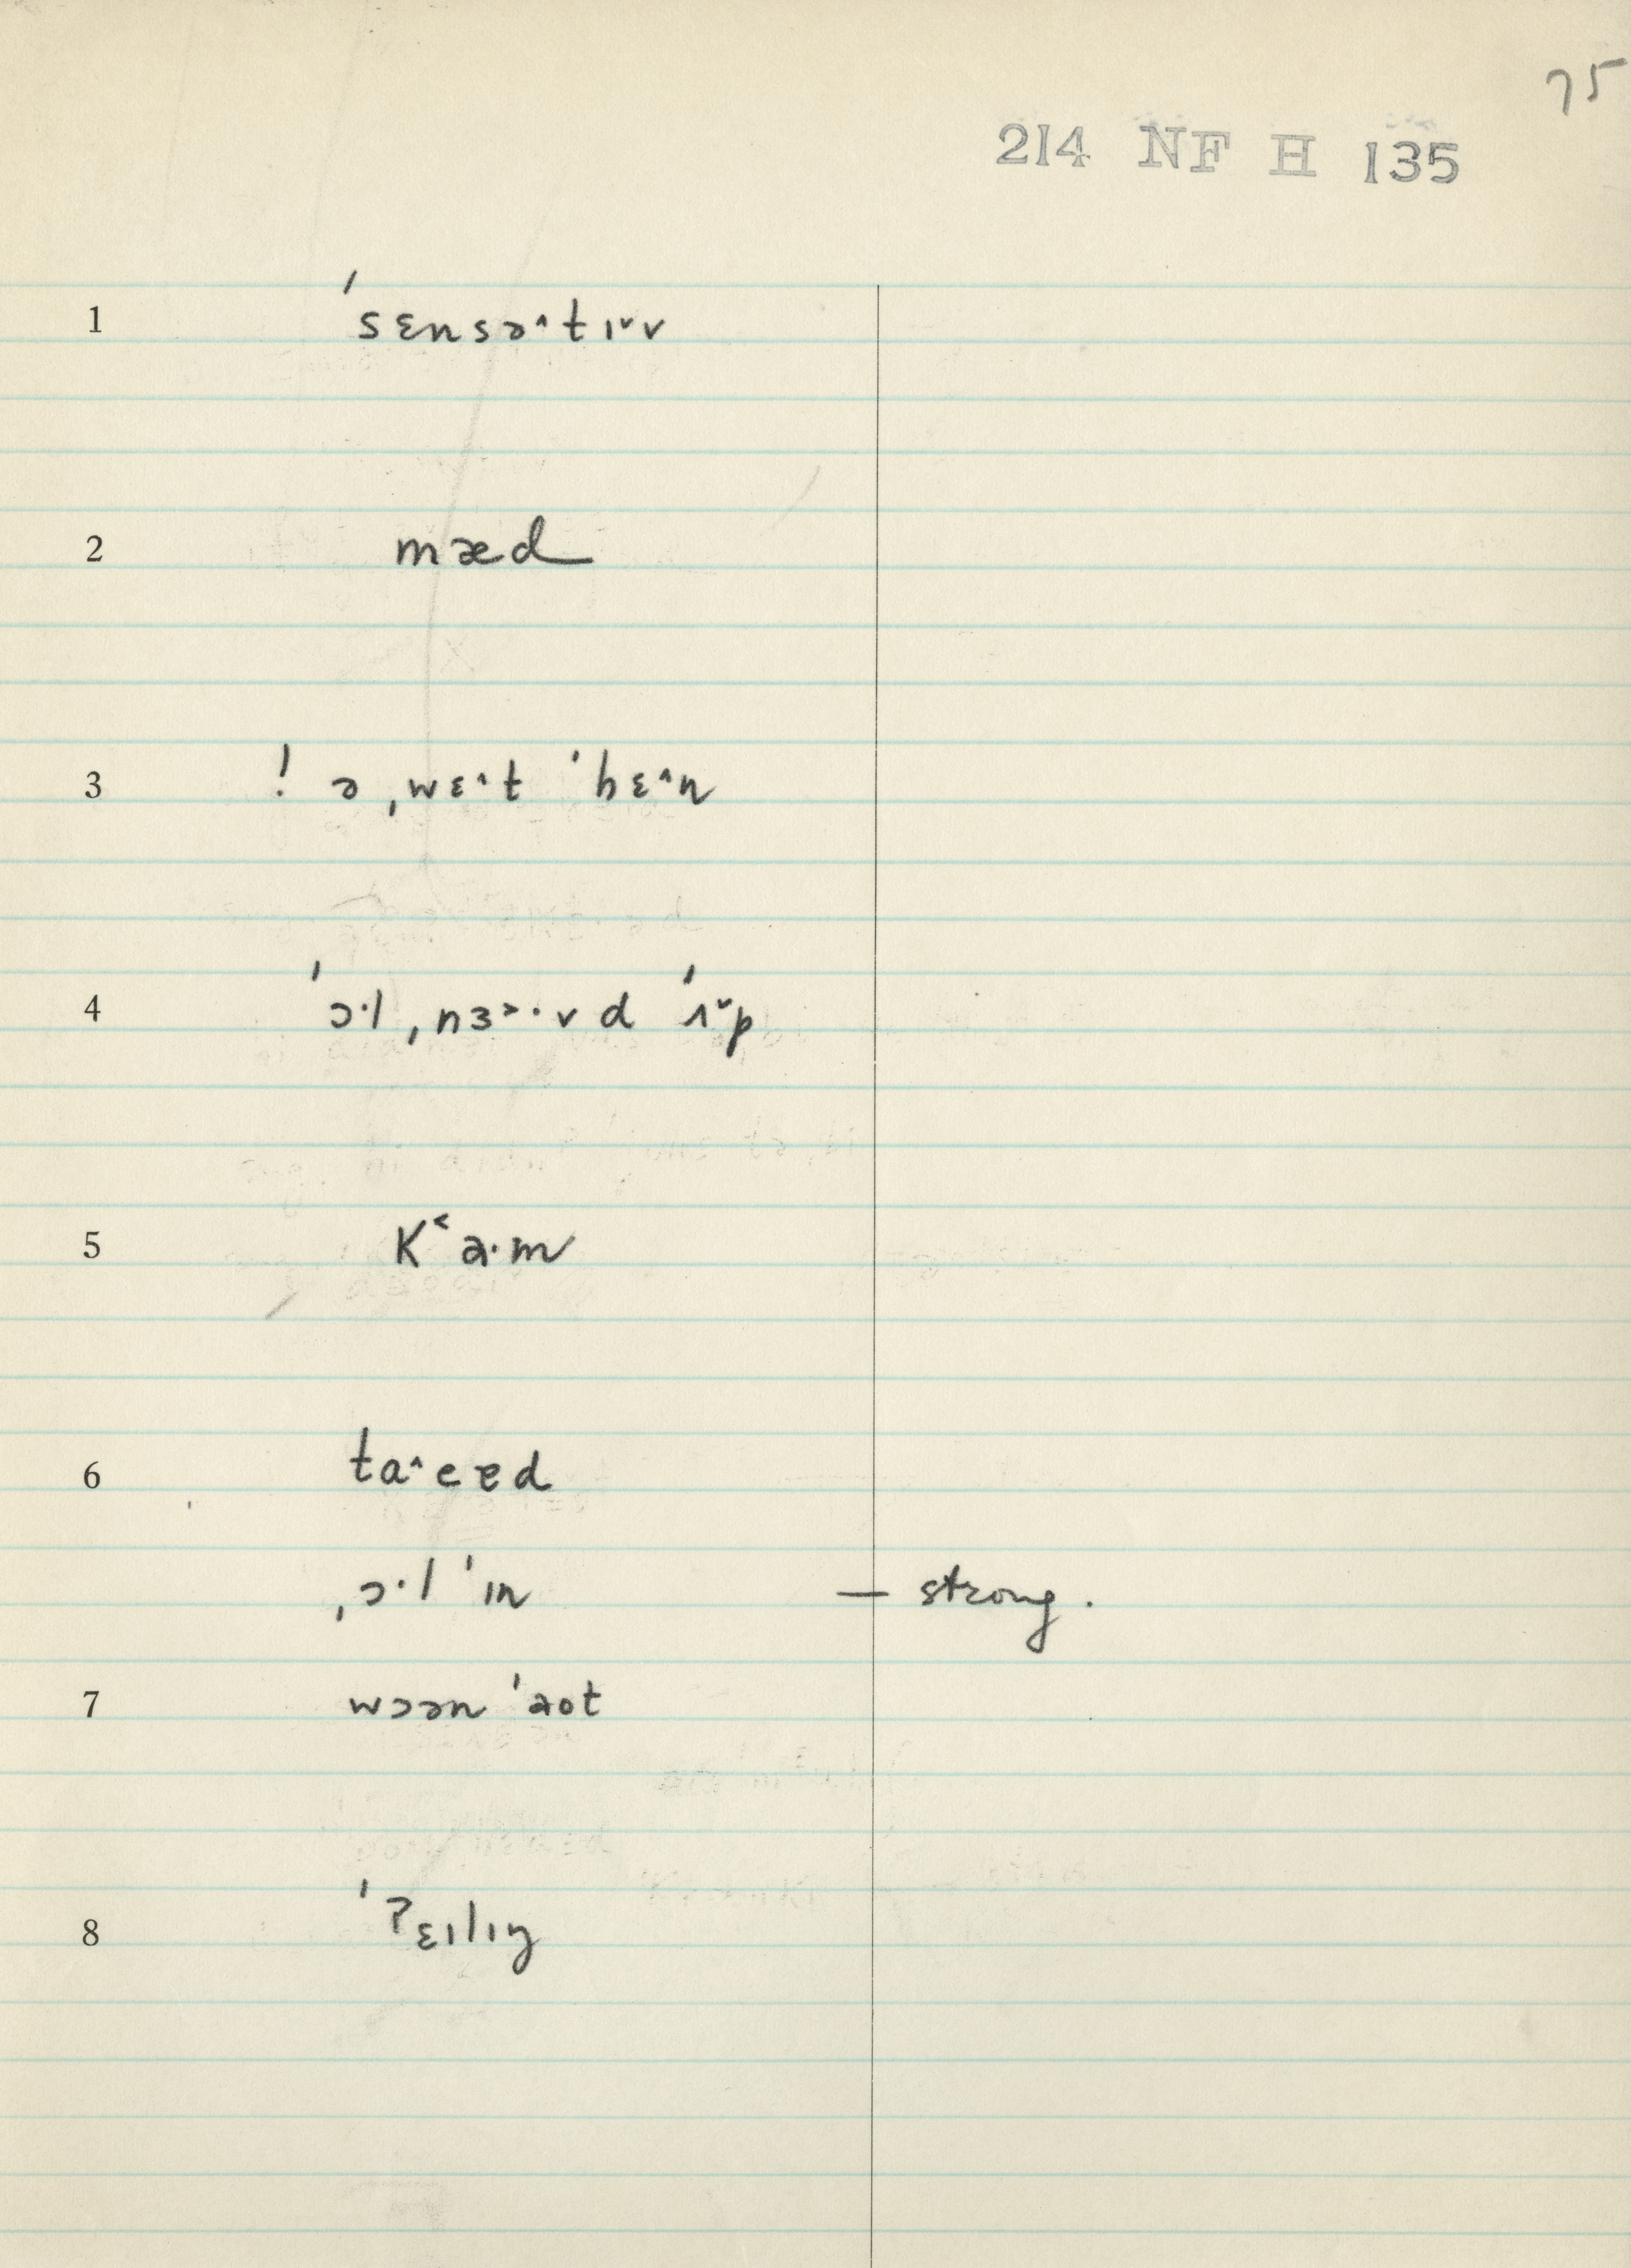 75
214 NF H 135
1 ˈsɛnsə^tɪˇv
2 mæd
3 ! ə ˌwɛ^t ˈhɛ^n
4 ˈɔ·l ˌnɜ˃·vd ˈɪˇp
5 K˂a·m
6 ta^ɛɐd
ˌɔ·l ˈɪn — strong.
7 wɔən ˈaot
8 ˈʔɛɪlɪŋ